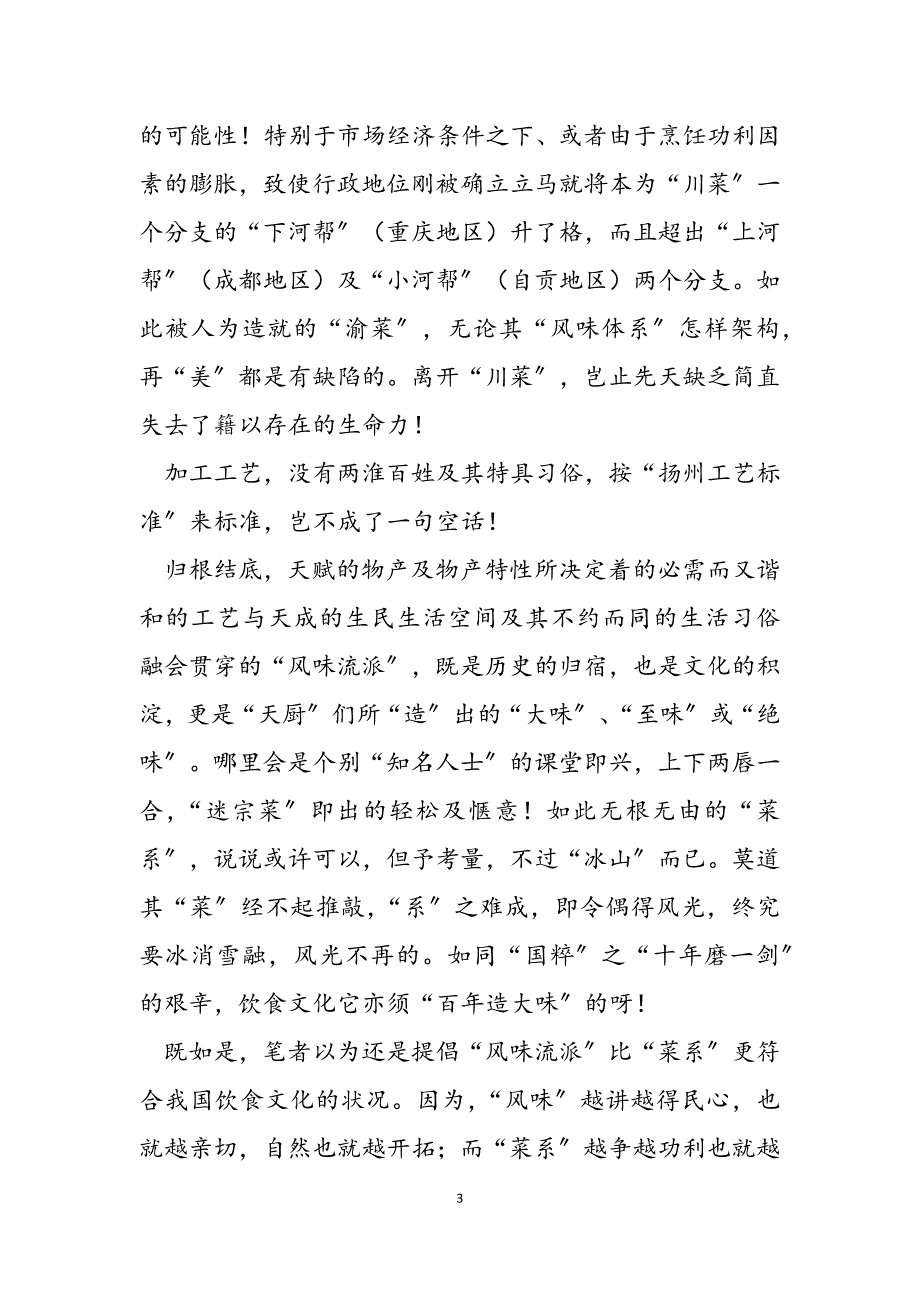 的可能性！特别于市场经济条件之下、或者由于烹饪功利因
素的膨胀，致使行政地位刚被确立立马就将本为“川菜〞一
个分支的“下河帮〞（重庆地区）升了格，而且超出“上河
帮〞（成都地区）及“小河帮〞（自贡地区）两个分支。如
此被人为造就的“渝菜〞，无论其“风味体系〞怎样架构，
再“美〞都是有缺陷的。离开“川菜〞，岂止先天缺乏简直
失去了籍以存在的生命力！
加工工艺，没有两淮百姓及其特具习俗，按“扬州工艺标
准〞来标准，岂不成了一句空话！
归根结底，天赋的物产及物产特性所决定着的必需而又谐
和的工艺与天成的生民生活空间及其不约而同的生活习俗
融会贯穿的“风味流派〞，既是历史的归宿，也是文化的积
淀，更是“天厨〞们所“造〞出的“大味〞、“至味〞或“绝
味〞。哪里会是个别“知名人士〞的课堂即兴，上下两唇一
合，“迷宗菜〞即出的轻松及惬意！如此无根无由的“菜
系〞，说说或许可以，但予考量，不过“冰山〞而已。莫道
其“菜〞经不起推敲，“系〞之难成，即令偶得风光，终究
要冰消雪融，风光不再的。如同“国粹〞之“十年磨一剑〞
的艰辛，饮食文化它亦须“百年造大味〞的呀！
既如是，笔者以为还是提倡“风味流派〞比“菜系〞更符
合我国饮食文化的状况。因为，“风味〞越讲越得民心，也
就越亲切，自然也就越开拓；而“菜系〞越争越功利也就越
3